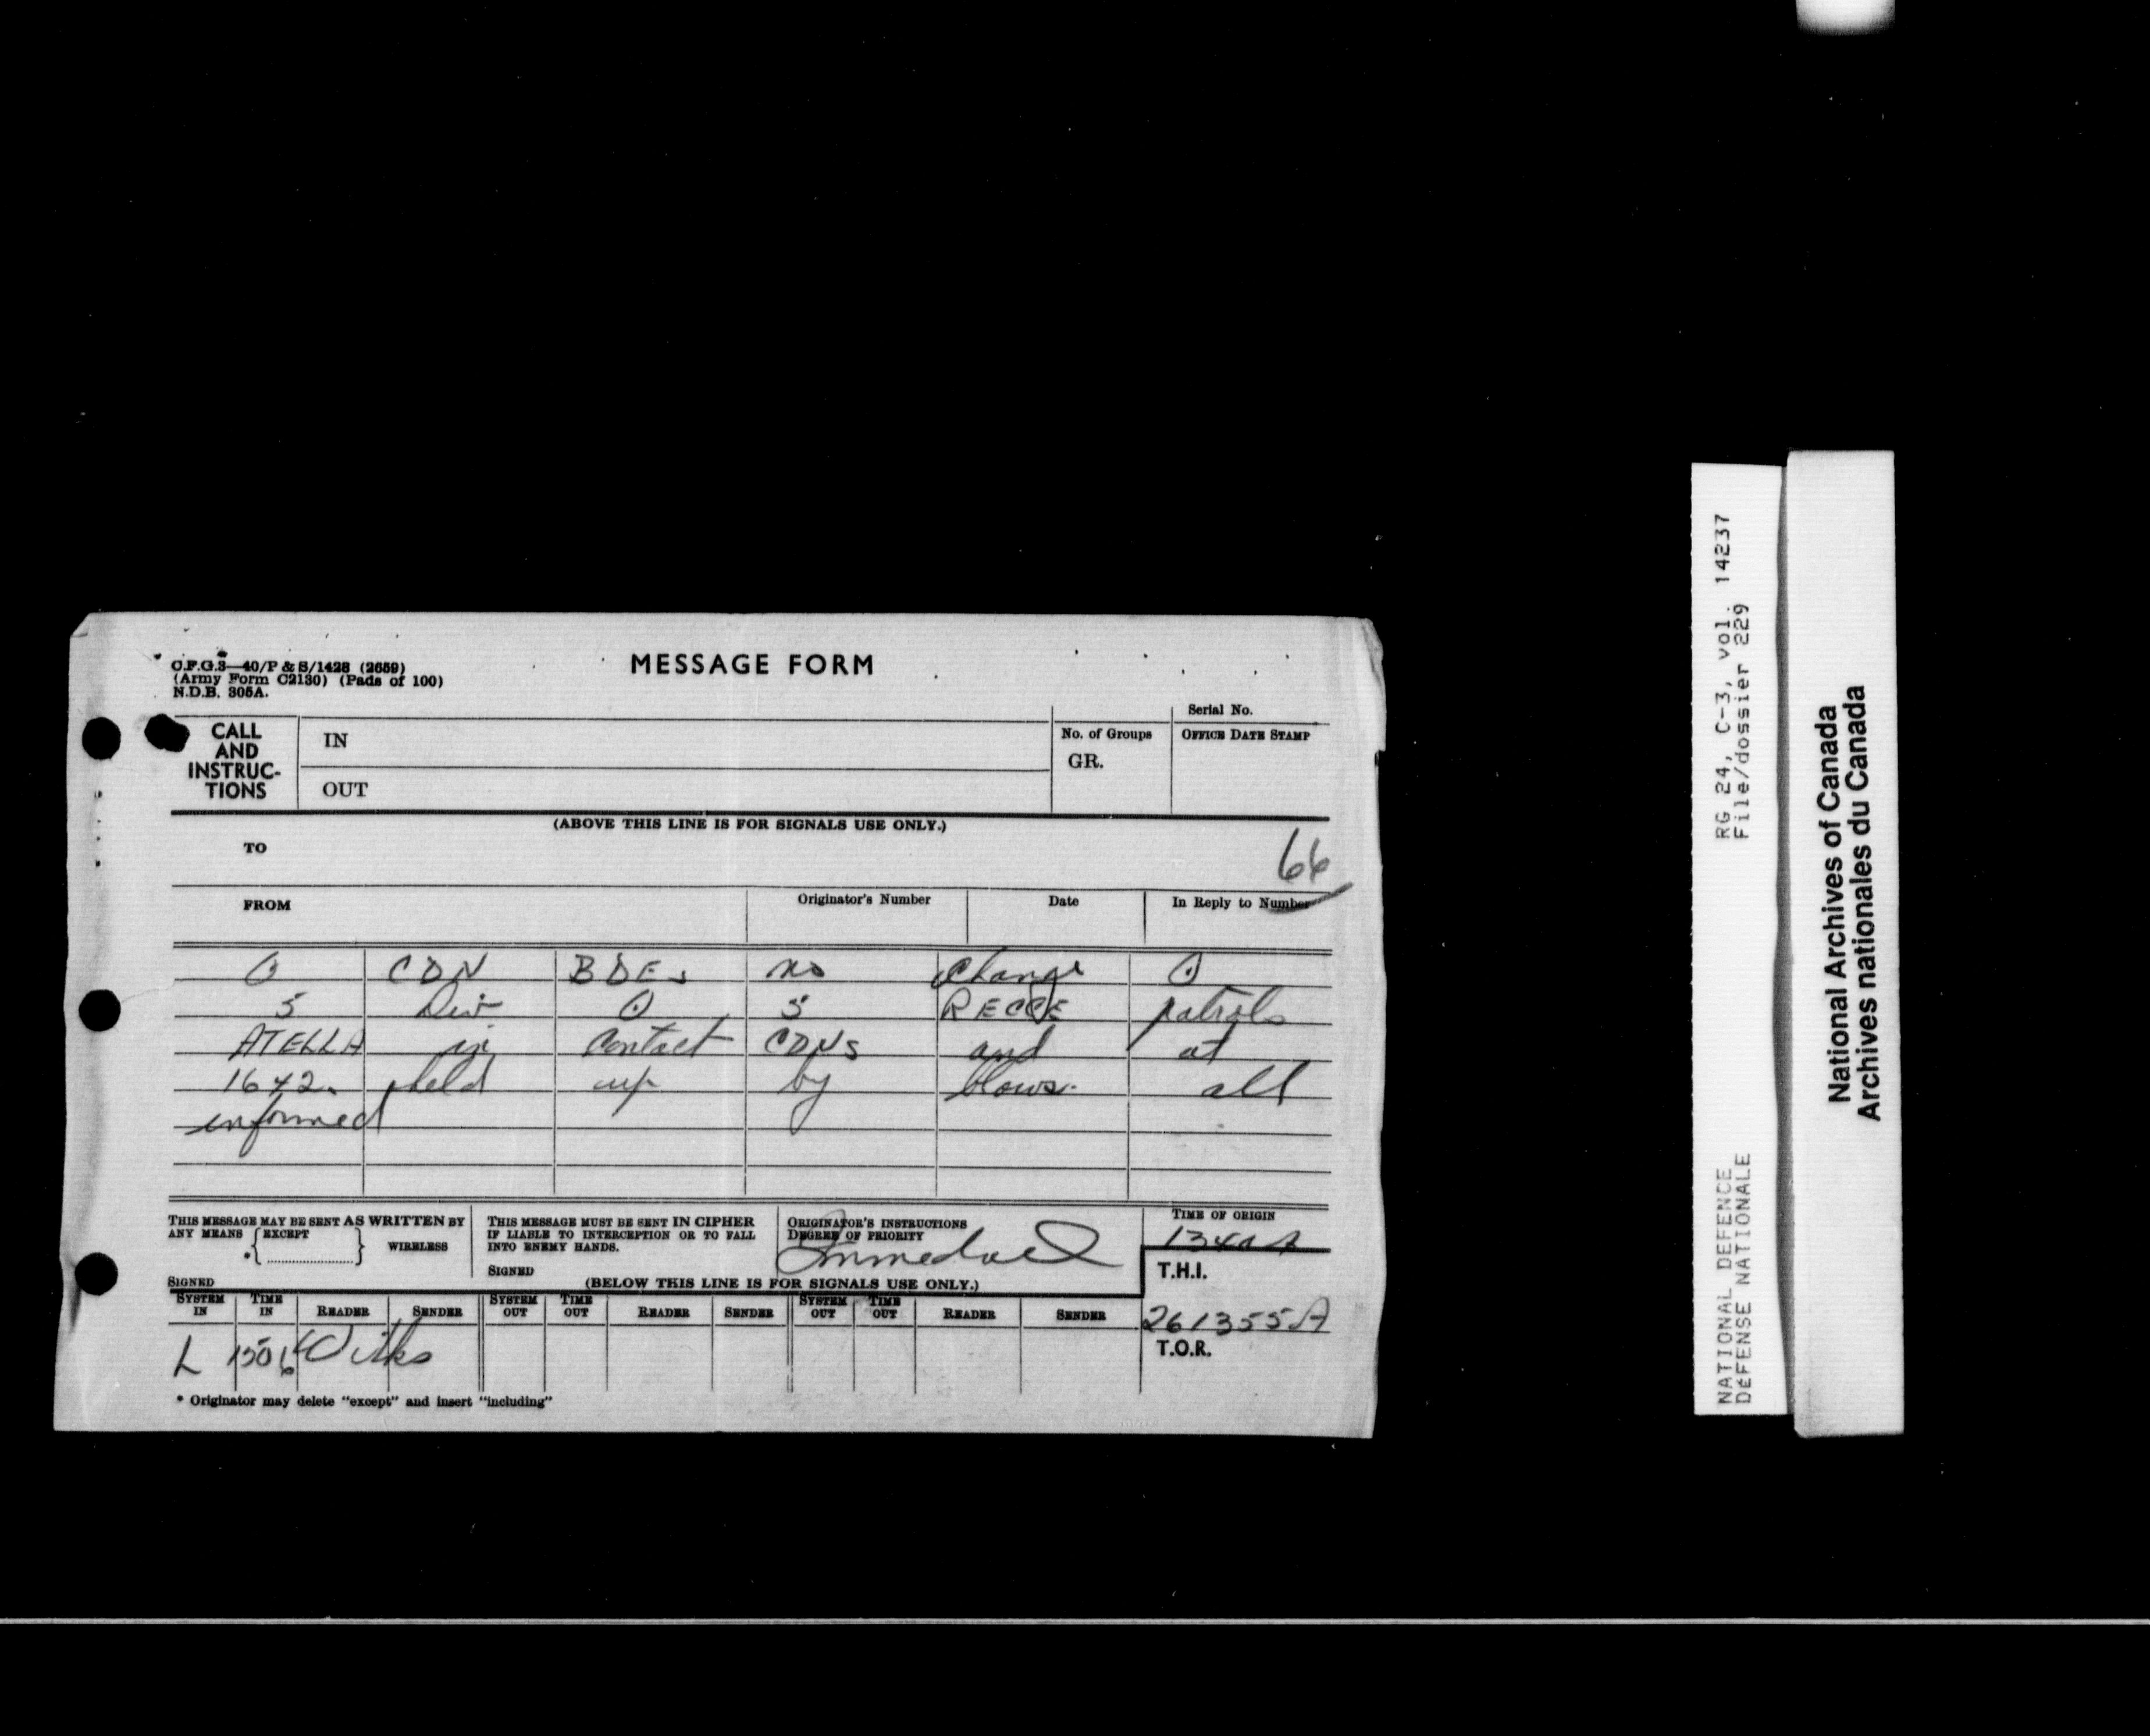 C.F.G.3—40/P & S/1428 (2659)
(Army Form C2130) (Pads of 100)
N.D.B. 305A.
MESSAGE FORM
Serial No.
CALL
AND
INSTRUC-
TIONS
IN
OUT
No. of Groups
GR.
OFFICE DATE STAMP
(ABOVE THIS LINE IS FOR SIGNALS USE ONLY.)
TO
66
FROM
Originator's Number
Date
In Reply to Number
CDN BDEs no change
5 Div 5 RECCE patrols
ATELLA in contact CDNS and at
1642 held up by blows. all
informed
THIS MESSAGE MAY BE SENT AS WRITTEN BY
ANY MEANS {EXCEPT
*{....................} WIRELESS
SIGNED
THIS MESSAGE MUST BE SENT IN CIPHER
IF LIABLE TO INTERCEPTION OR TO FALL
INTO ENEMY HANDS.
SIGNED
ORIGINATOR'S INSTRUCTIONS
DEGREE OF PRIORITY
TIME OF ORIGIN
T.H.I.
(BELOW THIS LINE IS FOR SIGNALS USE ONLY.)
SYSTEM IN TIME IN READER SENDER SYSTEM OUT TIME OUT READER SENDER SYSTEM OUT TIME OUT READER SENDER
261355A
T.O.R.
L 1506 Wilks
* Originator may delete "except" and insert "including"
RG 24, C-3, vol. 14237
File/dossier 229
NATIONAL DEFENCE
DÉFENSE NATIONALE
National Archives of Canada
Archives nationales du Canada